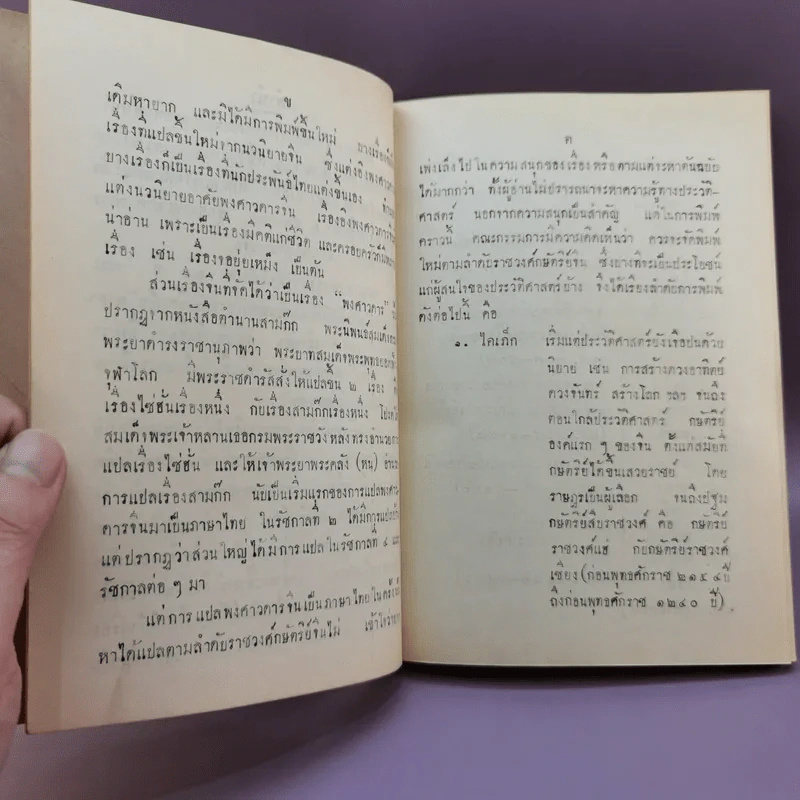 ข
เดิมหายาก และมิได้มีการพิมพ์ขึ้นใหม่ บางเรื่อง
เรื่องที่แปลขึ้นใหม่จากนวนิยายจีน ซึ่งแต่งอิงพงศาวดาร
บางเรื่องก็เป็นเรื่องที่นักประพันธ์ไทยแต่งขึ้นเอง
แต่งนวนิยายอาศัยพงศาวดารจีน เรื่องอิงพงศาวดารจีน
น่าอ่าน เพราะเป็นเรื่องมีคติแก่ชีวิต และครอบครัว
เรื่อง เช่น เรื่องจอยุ่ยเหม็ง เป็นต้น
ส่วนเรื่องจีนที่จัดได้ว่าเป็นเรื่อง “พงศาวดาร”
ปรากฏจากหนังสือตำนานสามก๊ก พระนิพนธ์สมเด็จกรม
พระยาดำรงราชานุภาพว่า พระบาทสมเด็จพระพุทธยอดฟ้า
จุฬาโลก มีพระราชดำรัสสั่งให้แปลขึ้น ๒ เรื่อง คือ
เรื่องไซ่ฮั่นเรื่องหนึ่ง กับเรื่องสามก๊กเรื่องหนึ่ง โปรดให้
สมเด็จพระเจ้าหลานเธอกรมพระราชวังหลังทรงอำนวยการ
แปลเรื่องไซ่ฮั่น และให้เจ้าพระยาพระคลัง (หน) อำนวย
การแปลเรื่องสามก๊ก นับเป็นเริ่มแรกของการแปลพงศาว-
ดารจีนมาเป็นภาษาไทย ในรัชกาลที่ ๒ ได้มีการแปลบ้าง
แต่ปรากฏว่าส่วนใหญ่ได้มีการแปลในรัชกาลที่ ๔ และ
รัชกาลต่อ ๆ มา
แต่การแปลพงศาวดารจีนเป็นภาษาไทยในครั้ง
หาได้แปลตามลำดับราชวงศ์กษัตริย์จีนไม่ เข้าใจว่า
ค
เพ่งเล็งไปในความสนุกของเรื่อง หรือตามแต่จะหาต้นฉบับ
ได้มากกว่า ทั้งผู้อ่านไม่ปรารถนาจะหาความรู้ทางประวัติ-
ศาสตร์ นอกจากความสนุกเป็นสำคัญ แต่ในการพิมพ์
คราวนี้ คณะกรรมการมีความคิดเห็นว่า ควรจะจัดพิมพ์
ใหม่ตามลำดับราชวงศ์กษัตริย์จีน ซึ่งบางทีจะเป็นประโยชน์
แก่ผู้สนใจของประวัติศาสตร์บ้าง จึงได้เรียงลำดับการพิมพ์
ดังต่อไปนี้ คือ
๑. ไคเภ็ก เริ่มแต่ประวัติศาสตร์ยังเจือปนด้วย
นิยาย เช่น การสร้างดวงอาทิตย์
ดวงจันทร์ สร้างโลก ฯลฯ จนถึง
ตอนใกล้ประวัติศาสตร์ กษัตริย์
องค์แรก ๆ ของจีน ตั้งแต่สมัยที่
กษัตริย์ได้ขึ้นเสวยราชย์ โดย
ราษฎรเป็นผู้เลือก จนถึงปฐม
กษัตริย์สืบราชวงศ์ คือ กษัตริย์
ราชวงศ์แฮ่ กับกษัตริย์ราชวงศ์
เซียง (ก่อนพุทธศักราช ๒๑๕๔ ปี
ถึงก่อนพุทธศักราช ๑๒๔๐ ปี)